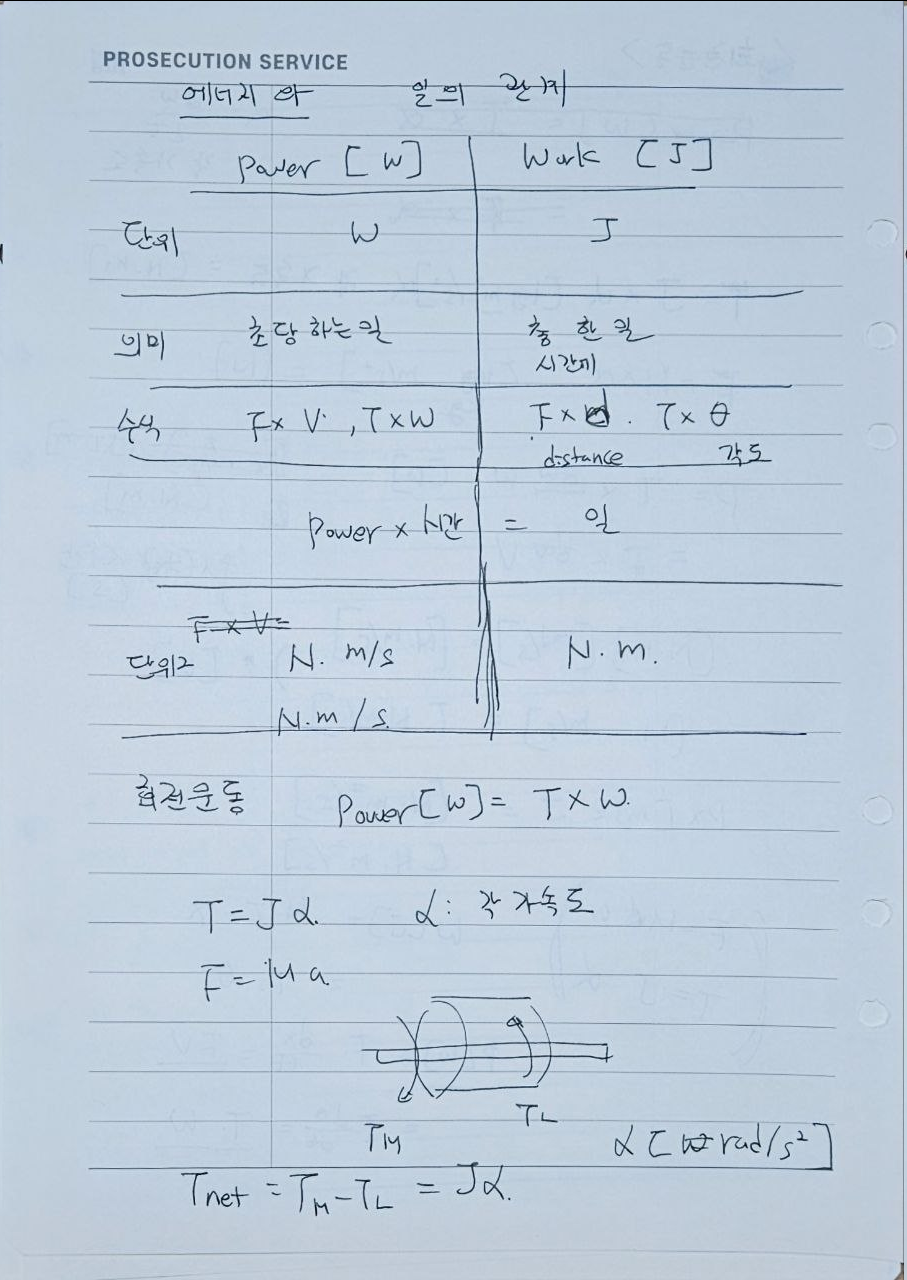 PROSECUTION SERVICE
에너지 와 일의 관계
Power [W] Work [J]
단위 W J
의미 초당 하는 일 총 한 일
시간에
수식 F x V , T x W F x d . T x θ
distance 각도
Power x 시간 = 일
F x V =
단위2 N. m/s N. m.
N.m / s.
회전운동 Power [W] = T x W.
T = J α. α : 각 가속도
F = M a.
TL
TM
α [ rad/s² ]
Tnet = TM - TL = Jα.